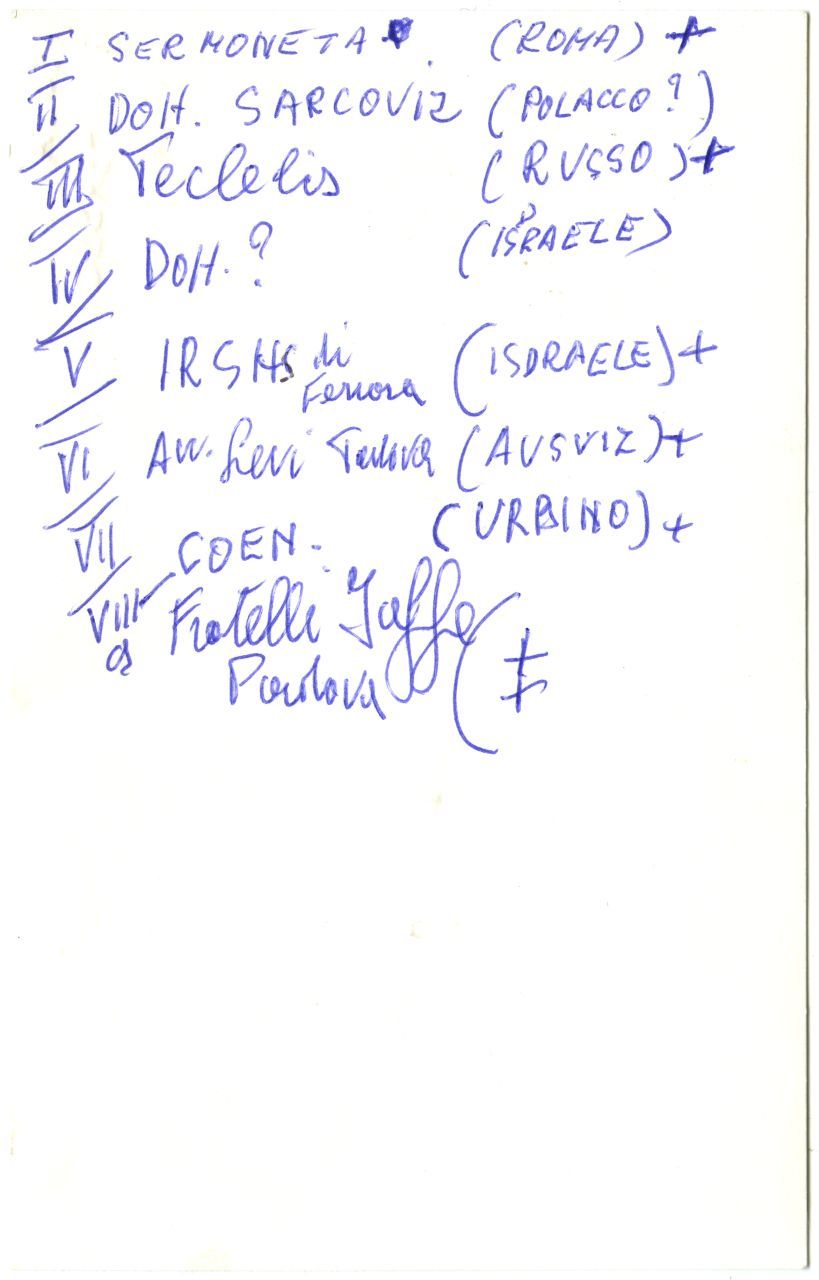 I SERMONETA. (ROMA) +
II DOtt. SARCOVIZ (POLACCO?)
III Teclelis (RUSSO) +
IV DOtt. ? (ISRAELE)
V IRSHs di Ferrara (ISDRAELE) +
VI Avv. Levi Padova (AUSVIZ) +
VII COEN. (URBINO) +
VIII Fratelli Jaffe (
Padova